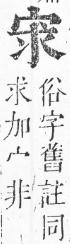 俗字舊註同
求加宀非